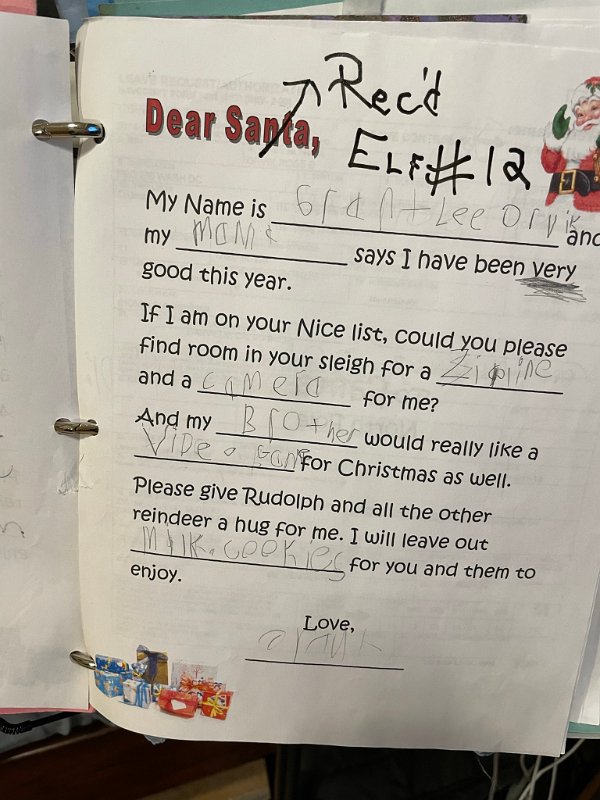 Rec'd
Dear Santa,
ELF #12
My Name is Grant Lee Orvik and
my mom says I have been very
good this year.
If I am on your Nice list, could you please
find room in your sleigh for a Zipline
and a camera for me?
And my Brother would really like a
Video game for Christmas as well.
Please give Rudolph and all the other
reindeer a hug for me. I will leave out
milk. cookies for you and them to
enjoy.
Love,